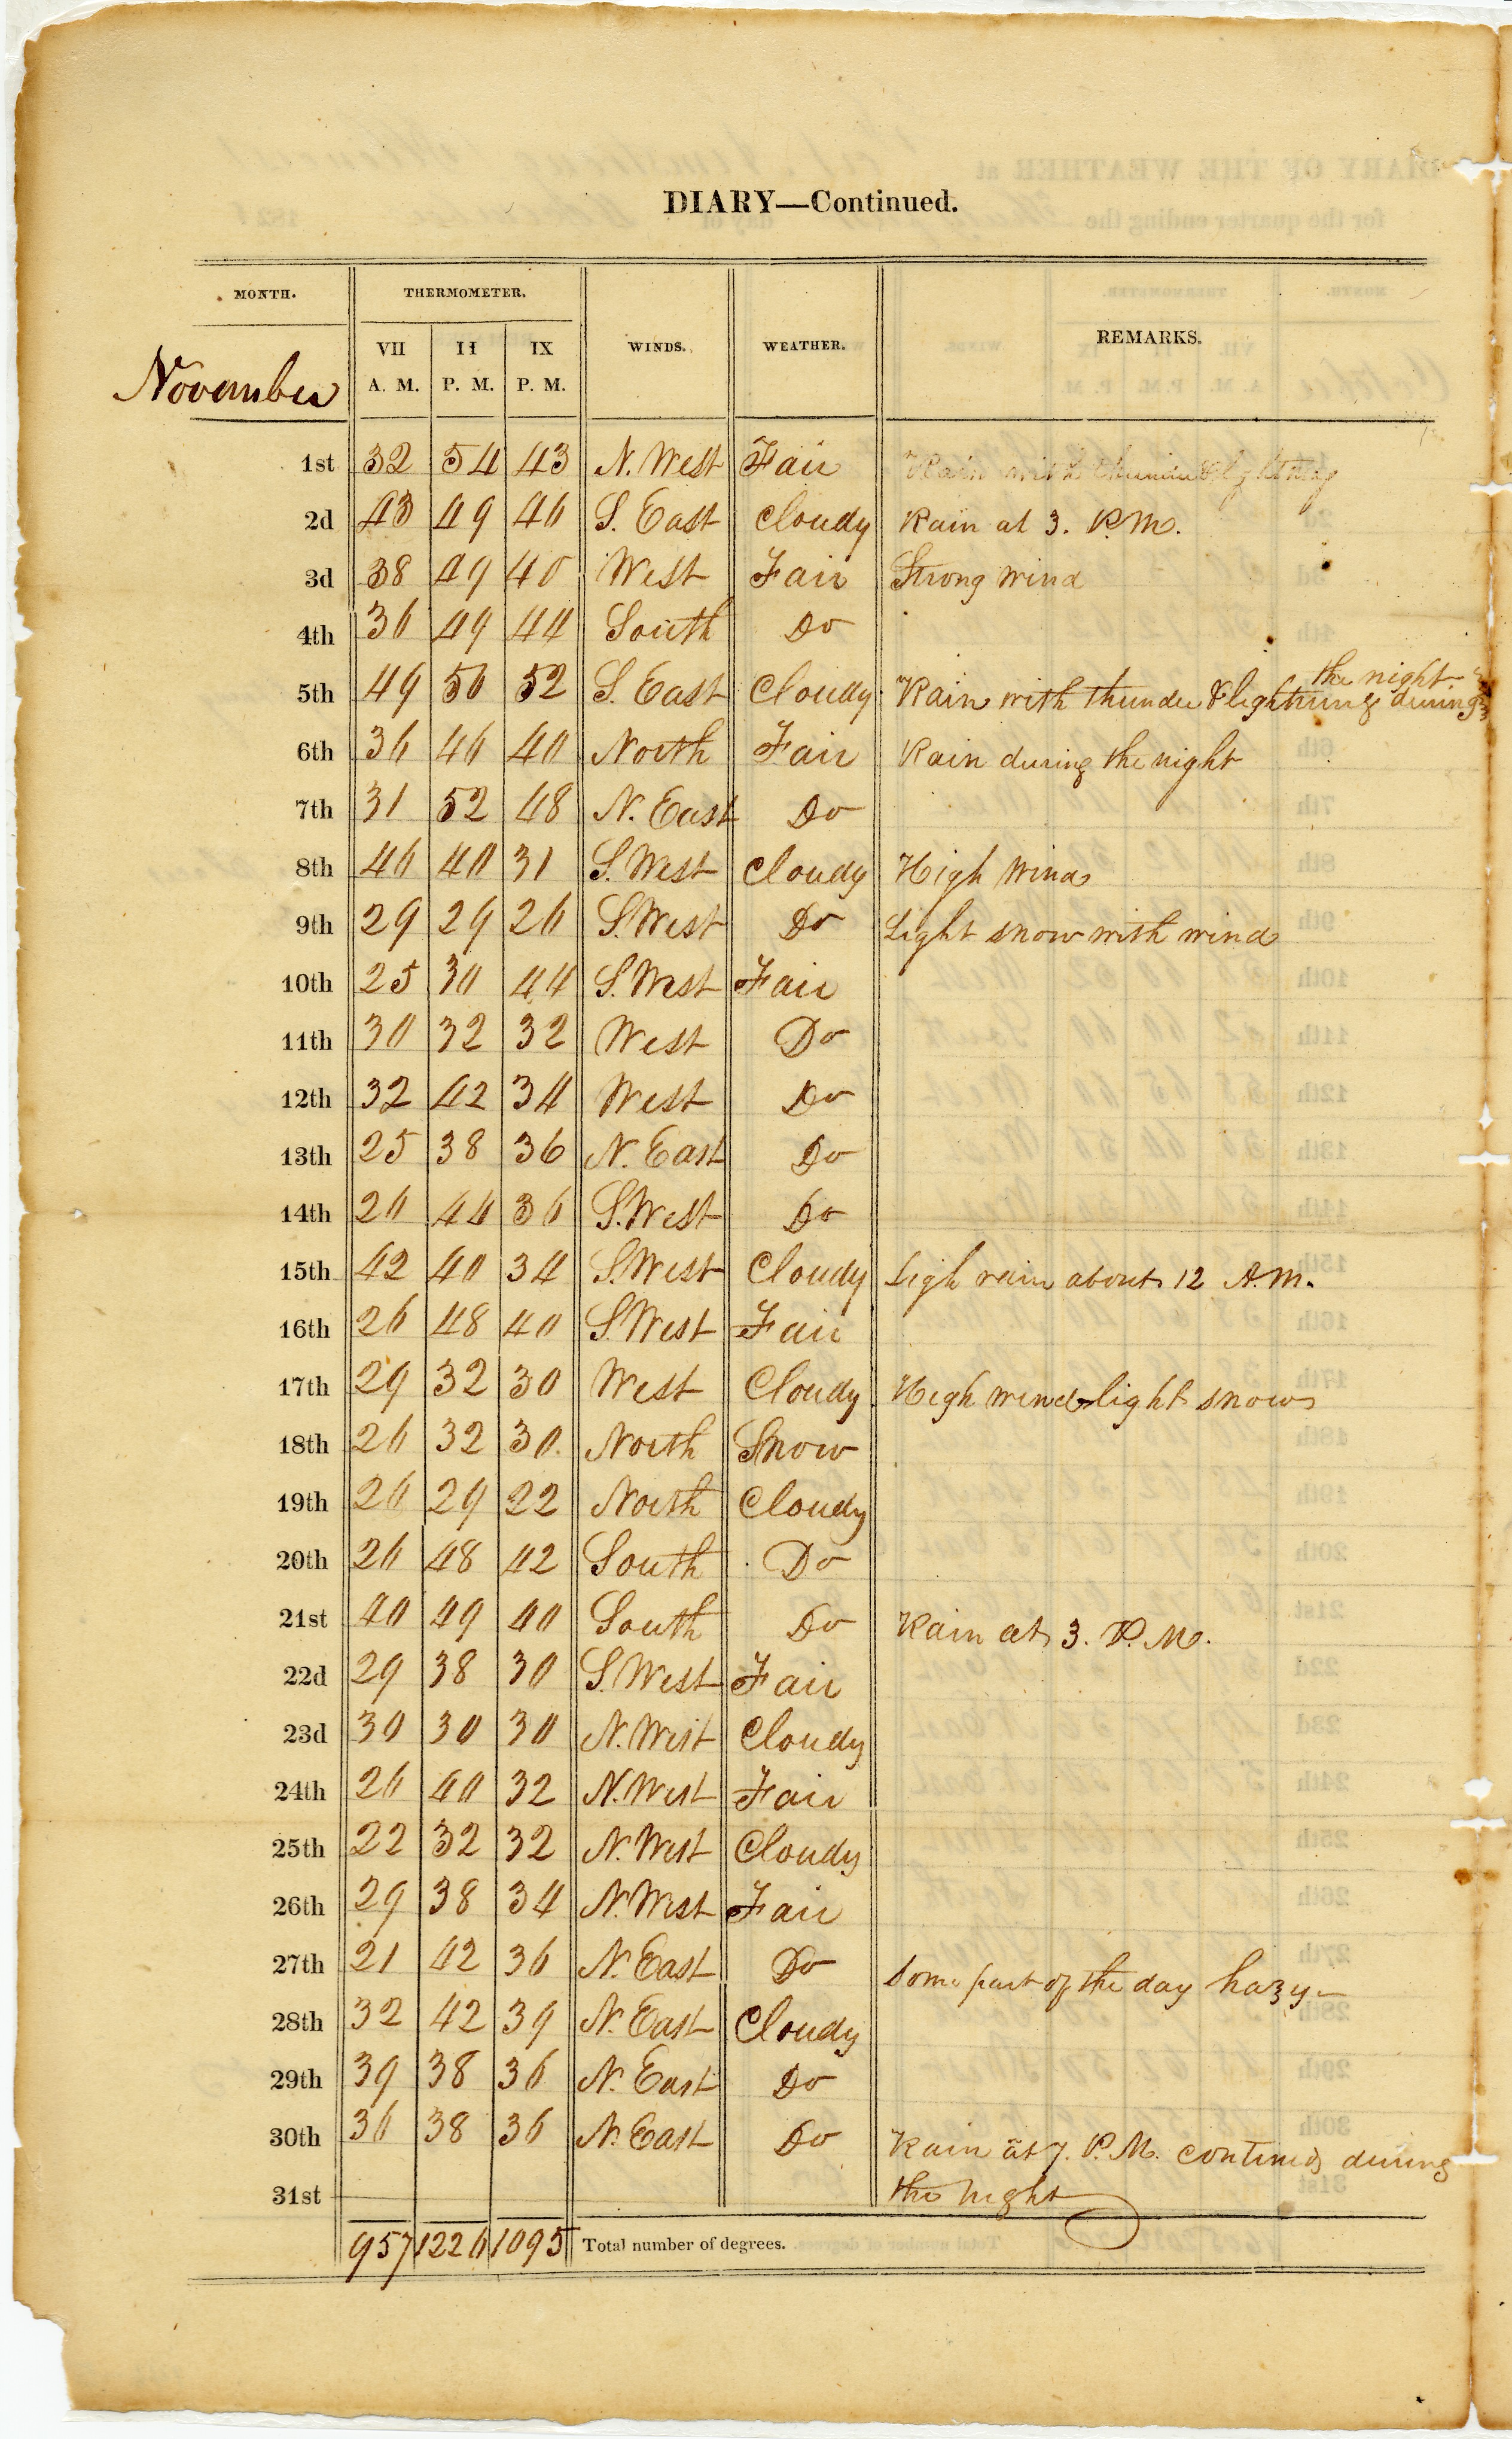 DIARY—Continued.
MONTH. THERMOMETER. WINDS. WEATHER. REMARKS.
VII II IX
November A. M. P. M. P. M.
1st 32 54 43 N. West Fair Rain with thunder & lightning
2d 43 49 46 S. East Cloudy Rain at 3. P.M.
3d 38 49 40 West Fair Strong wind
4th 36 49 44 South Do
the night
5th 49 56 52 S. East Cloudy Rain with thunder & lightning during
6th 36 46 40 North Fair Rain during the night
7th 31 52 48 N. East Do
8th 46 40 31 S. West Cloudy High Wind
9th 29 29 26 S. West Do Light snow with wind
10th 25 30 44 S. West Fair
11th 30 32 32 West Do
12th 32 42 34 West Do
13th 25 38 36 N. East Do
14th 26 44 36 S. West Do
15th 42 40 34 S. West Cloudy Ligh rain about 12 A.M.
16th 26 48 40 S. West Fair
17th 29 32 30 West Cloudy High wind light snow
18th 26 32 30 North Snow
19th 26 29 22 North Cloudy
20th 26 48 42 South Do
21st 40 49 40 South Do Rain at 3. P. M.
22d 29 38 30 S. West Fair
23d 30 30 30 N. West Cloudy
24th 26 40 32 N. West Fair
25th 22 32 32 N. West Cloudy
26th 29 38 34 N. West Fair
27th 21 42 36 N. East Do Some part of the day hazy
28th 32 42 39 N. East Cloudy
29th 39 38 36 N. East Do
30th 36 38 36 N. East Do Rain at 7. P. M. during
31st the night
957 1226 1095 Total number of degrees.